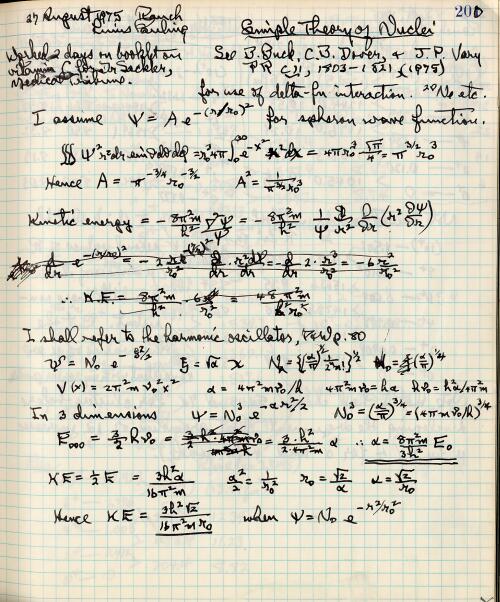 27 August 1975 Ranch
Linus Pauling
Simple Theory of Nuclei
201
Worked 2 days on booklet on
vitamin C for Dr Sackler,
Medical Tribune.
See B. Buck, C.B. Dover, & J.P. Vary
PR C11, 1803-1821 (1975)
for use of delta-fn interaction. ²⁰Ne etc.
I assume Ψ = A e^{-(r/r₀)²} for spheron wave function.
∭ Ψ² r² dr sinθ dθ dφ = r₀³ 4π ∫₀^∞ e^{-x²} x² dx = 4π r₀³ √π/4 = π^{3/2} r₀³
Hence A = π^{-3/4} r₀^{-3/2} A² = 1/(π^{3/2} r₀³)
Kinetic energy = - 8π²m/h² ∇²Ψ/Ψ = - 8π²m/h² 1/Ψ 1/r² ∂/∂r (r² ∂Ψ/∂r)
∴ K.E. = 8π²m/h²
I shall refer to the harmonic oscillator, P&W p. 80
ψ = N₀ e^{-ξ²/2} ξ = √α x
V(x) = 2π²m ν₀² x² α = 4π²m ν₀/h 4π²m ν₀ = hα hν₀ = h²α/4π²m
In 3 dimensions Ψ = N₀³ e^{-α r²/2} N₀³ = (α/π)^{3/4} = (4π m ν₀/h)^{3/4}
E₀₀₀ = 3/2 hν₀ = 3·h²/(2·4π²m) α ∴ α = 8π²m/3h² E₀
KE = ½ E = 3h²α/16π²m α²/2 = 1/r₀² r₀ = √2/α α = √2/r₀
Hence KE = 3h²√2/(16π²m r₀) when Ψ = N₀ e^{-r²/r₀²}